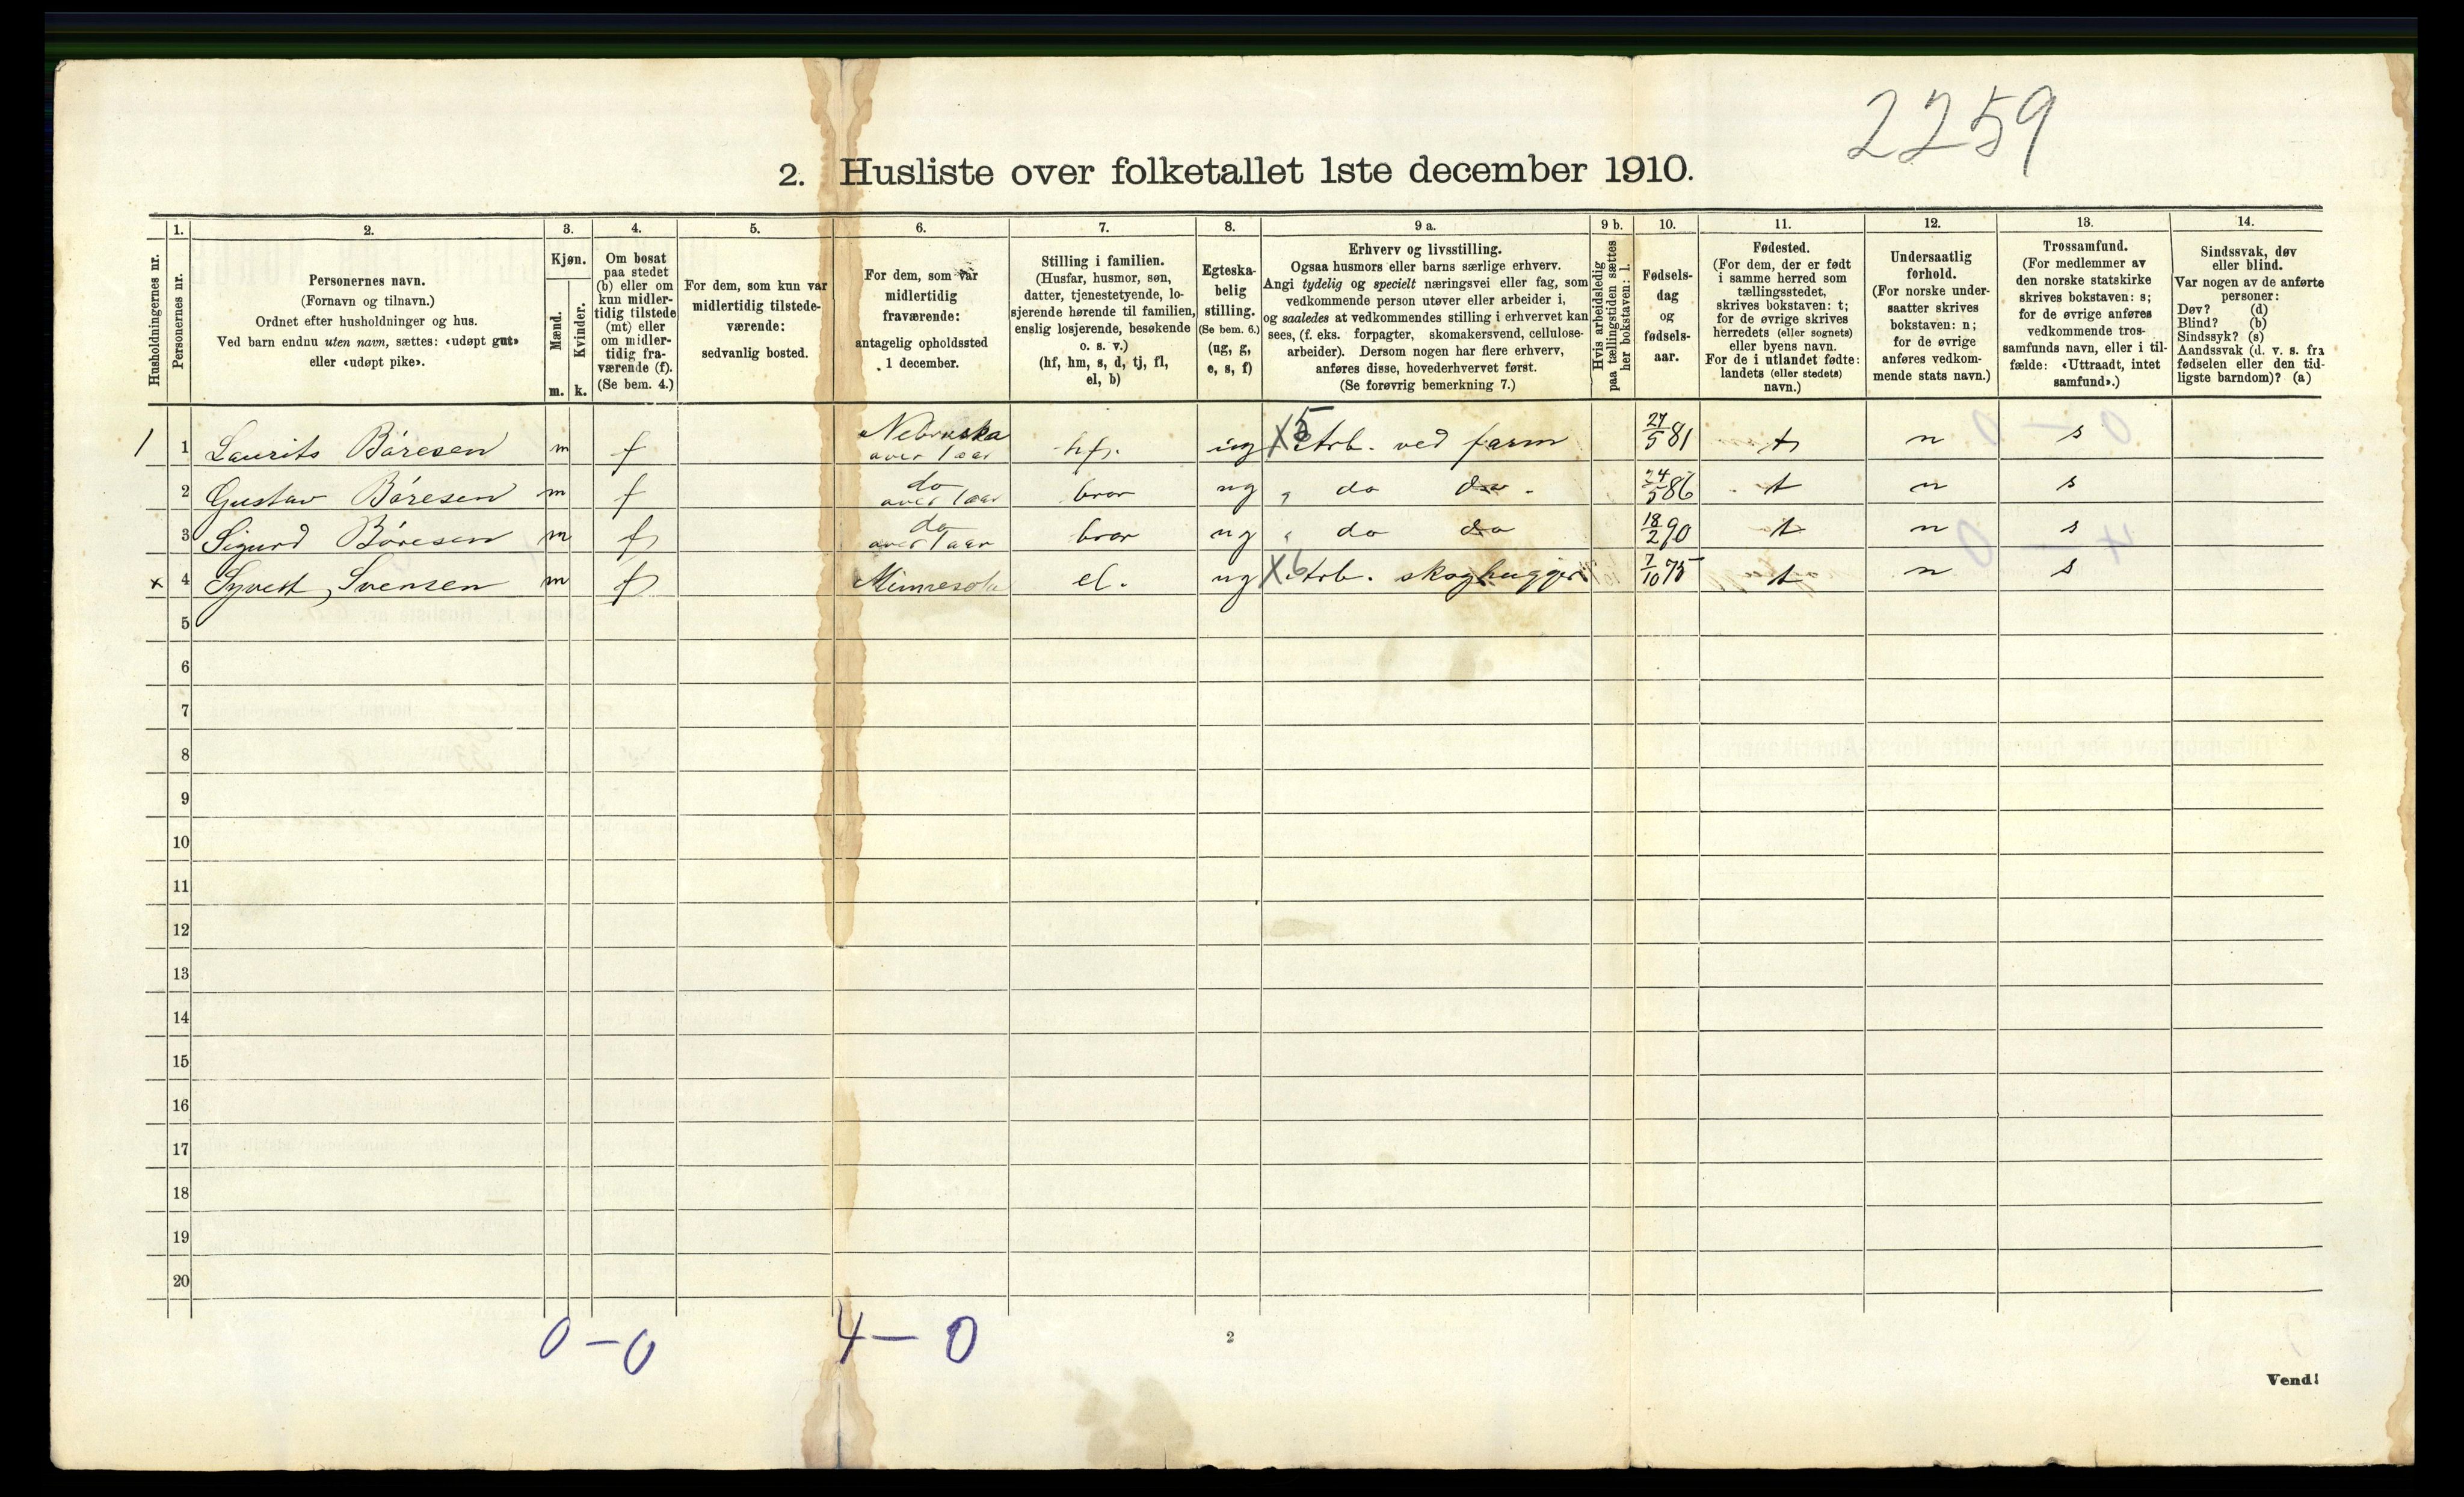 2259
2. Husliste over folketallet 1ste december 1910.
1. 2. 3. 4. 5. 6. 7. 8. 9 a. 9 b. 10. 11. 12. 13. 14.
Husholdningernes nr.
Personernes nr.
Personernes navn.
(Fornavn og tilnavn.)
Ordnet efter husholdninger og hus.
Ved barn endnu uten navn, sættes: «udøpt gut»
eller «udøpt pike».
Kjøn.
Mænd.
Kvinder.
m. k.
Om bosat
paa stedet
(b) eller om
kun midler-
tidig tilstede
(mt) eller
om midler-
tidig fra-
værende (f).
(Se bem. 4.)
For dem, som kun var
midlertidig tilstede-
værende:
sedvanlig bosted.
For dem, som var
midlertidig
fraværende:
antagelig opholdssted
1 december.
Stilling i familien.
(Husfar, husmor, søn,
datter, tjenestetyende, lo-
sjerende hørende til familien,
enslig losjerende, besøkende
o. s. v.)
(hf, hm, s, d, tj, fl,
el, b)
Egteska-
belig
stilling.
(Se bem. 6.)
(ug, g,
e, s, f)
Erhverv og livsstilling.
Ogsaa husmors eller barns særlige erhverv.
Angi tydelig og specielt næringsvei eller fag, som
vedkommende person utøver eller arbeider i,
og saaledes at vedkommendes stilling i erhvervet kan
sees, (f. eks. forpagter, skomakersvend, cellulose-
arbeider). Dersom nogen har flere erhverv,
anføres disse, hovederhvervet først.
(Se forøvrig bemerkning 7.)
Hvis arbeidsledig
paa tællingstiden sættes
her bokstaven: l.
Fødsels-
dag
og
fødsels-
aar.
Fødested.
(For dem, der er født
i samme herred som
tællingsstedet,
skrives bokstaven: t;
for de øvrige skrives
herredets (eller sognets)
eller byens navn.
For de i utlandet fødte:
landets (eller stedets)
navn.)
Undersaatlig
forhold.
(For norske under-
saatter skrives
bokstaven: n;
for de øvrige
anføres vedkom-
mende stats navn.)
Trossamfund.
(For medlemmer av
den norske statskirke
skrives bokstaven: s;
for de øvrige anføres
vedkommende tros-
samfunds navn, eller i til-
fælde: «Uttraadt, intet
samfund».)
Sindssvak, døv
eller blind.
Var nogen av de anførte
personer:
Døv? (d)
Blind? (b)
Sindssyk? (s)
Aandssvak (d. v. s. fra
fødselen eller den tid-
ligste barndom)? (a)
1 1 Laurits Båresen m f Nebraska over 1 aar hf. ug X5 Arb. ved farm 27/5 81 t n s
2 Gustav Båresen m f do over 1 aar bror ug " do do. 24/5 86 t n s
3 Sigurd Båresen m f do over 1 aar bror ug " do do 18/2 90 t n s
x 4 Syvert Svensen m f Minnesota el. ug X6 Arb. skoghugger 7/10 75 t n s
5
6
7
8
9
10
11
12
13
14
15
16
17
18
19
20
0 – 0 4 – 0
2
Vend!